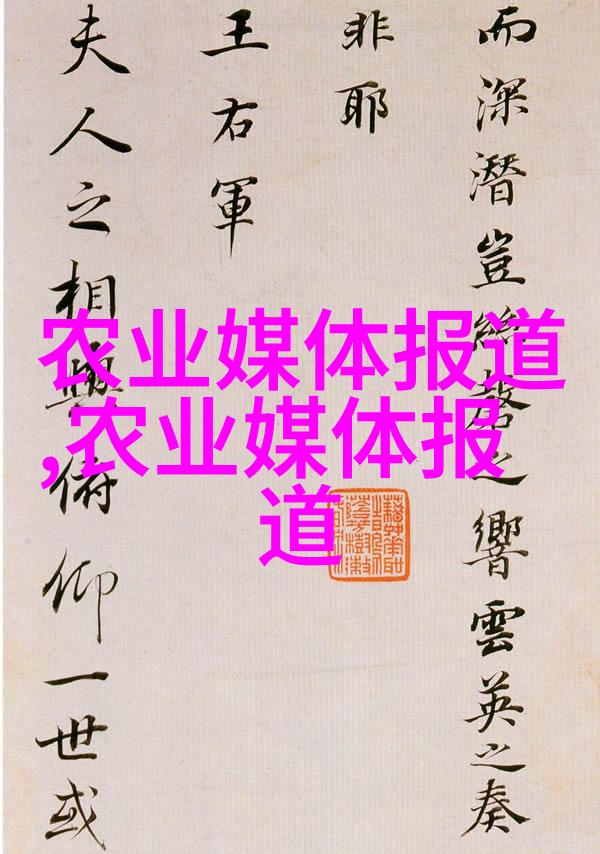 而深潛豈絲磬之響雲英之奏
非耶
王右軍
夫人之相與俯仰一世或
农业媒体报道
,农业媒体报
道